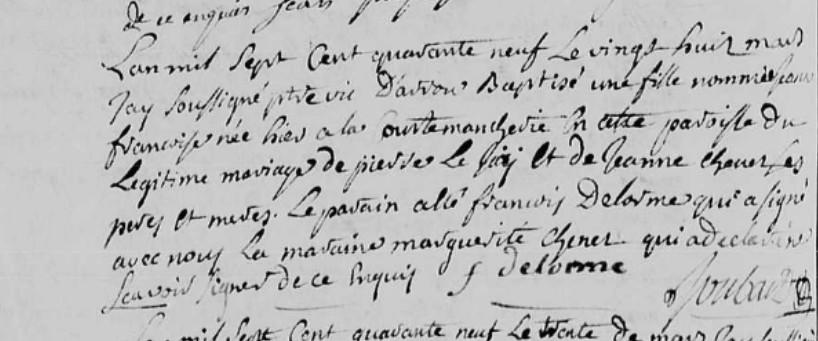 de ce enquis
Lan mil Sept Cent quarante neuf Le vingt huit mars
Jay Soussigné ptre vic D'arrou Baptisé une fille nommée Jeane
francoise née hier a la Courtemancherie En cette paroisse du
Legitime mariage de pierre Le Jay Et de Jeanne Chenet Ses
peres Et meres. Le parain a Eté francois Delorme qui a signé
avec nous La maraine marguerite Chenet qui a declaré ne
Scavoir signer de ce Enquis f delorme
Lan mil Sept Cent quarante neuf Le trente de mars Jay